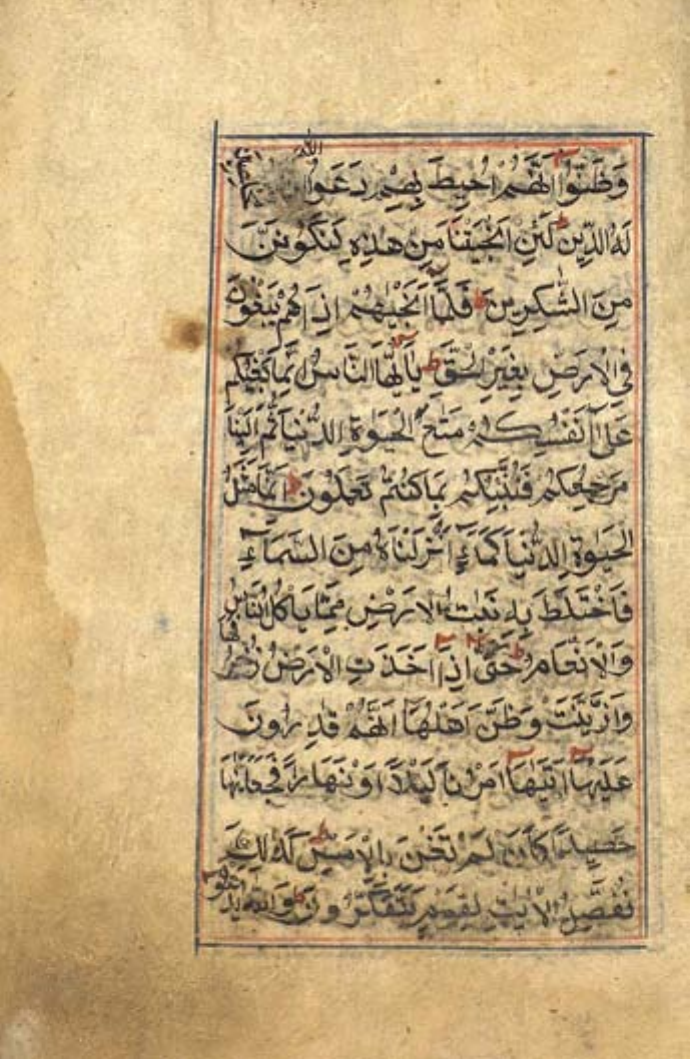 وَظَنُّوا أَنَّهُمْ أُحِيطَ بِهِمْ دَعَوُا اللَّهَ مُخْلِصِينَ
لَهُ الدِّينَ لَئِنْ أَنْجَيْتَنَا مِنْ هَذِهِ لَنَكُونَنَّ
مِنَ الشَّكِرِينَ فَلَمَّا أَنْجَيهُمْ إِذَا هُمْ يَبْغُونَ
فِي الْأَرْضِ بِغَيْرِ الْحَقِّ يَا أَيُّهَا النَّاسُ إِنَّمَا بَغْيُكُمْ
عَلَى أَنْفُسِكُمْ مَتَعَ الْحَيَوةِ الدُّنْيَا ثُمَّ إِلَيْنَا
مَرْجِعُكُمْ فَنُنَبِّئُكُمْ بِمَا كُنْتُمْ تَعْمَلُونَ إِنَّمَا مَثَلُ
الْحَيَوةِ الدُّنْيَا كَمَاءٍ أَنْزَلْنَاهُ مِنَ السَّمَاءِ
فَاخْتَلَطَ بِهِ نَبَاتُ الْأَرْضِ مِمَّا يَأْكُلُ النَّاسُ
وَالْأَنْعَامُ حَتَّى إِذَا أَخَذَتِ الْأَرْضُ زُخْرُفَهَا
وَازَّيَّنَتْ وَظَنَّ أَهْلُهَا أَنَّهُمْ قَدِرُونَ
عَلَيْهَا أَتَيهَا أَمْرُنَا لَيْلًا أَوْ نَهَارًا فَجَعَلْنَهَا
حَصِيدًا كَأَنْ لَمْ تَغْنَ بِالْأَمْسِ كَذَلِكَ
نُفَصِّلُ الْآيَتِ لِقَوْمٍ يَتَفَكَّرُونَ وَاللَّهُ يَدْعُو